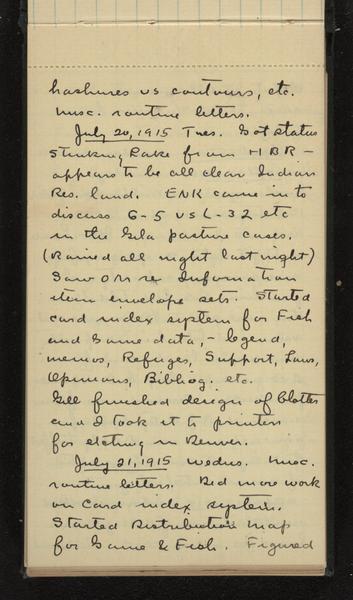 hashures vs contours, etc.
Misc. routine letters.
July 20, 1915 Tues. Got status
Stinking Lake from HBR -
appears to be all clear Indian
Res. land. ENK came in to
discuss G-5 vs L-32 etc
in the Gila pasture cases.
(Rained all night last night)
Saw on re Information
item envelope sets. Started
card index system for Fish
and Game data, - legend,
memos, Refuges, Support, Laws,
Opinions, Bibliog. etc.
Gill finished design of blotter
and I took it to printers
for etching in Denver.
July 21, 1915 Wednes. Misc.
routine letters. Did more work
on Card index system.
Started Distribution map
for Game & Fish. Figured